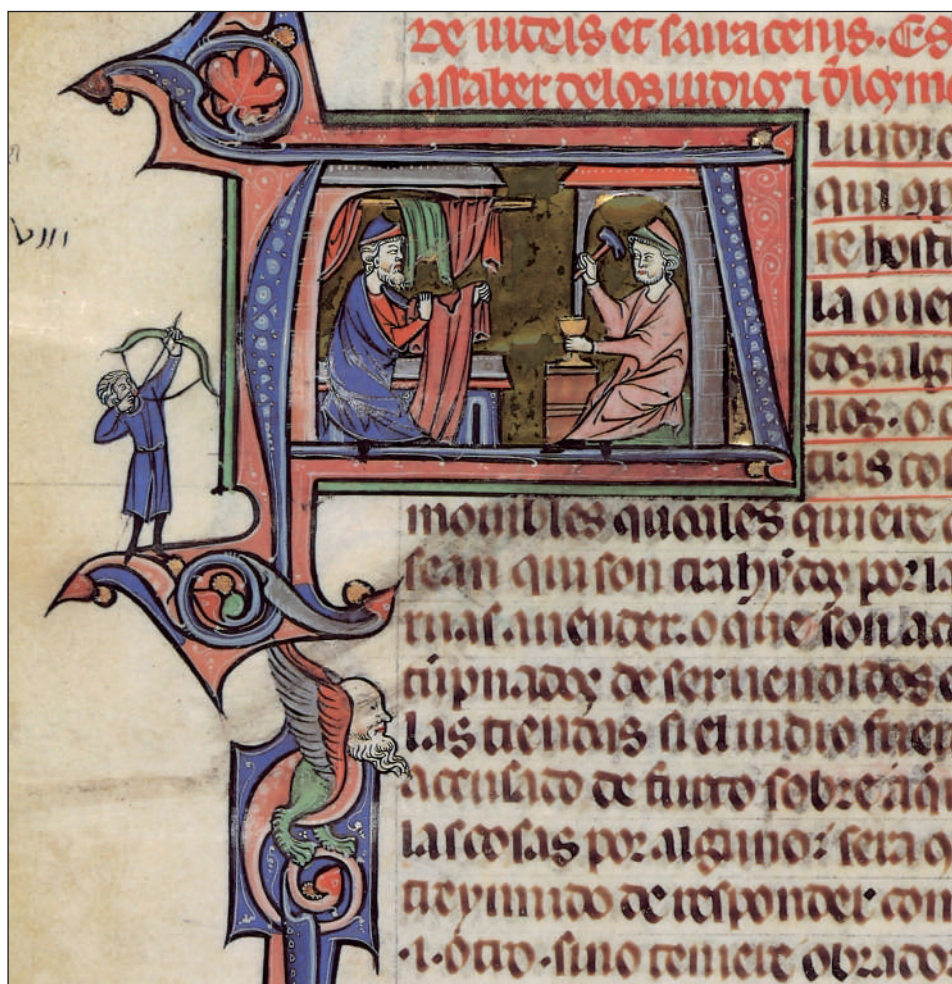 De iudeis et sarracenis. Es
assaber delos iudios ⁊ dlos m
VIII
l iudio
qui qu
re hosti
la o ue
dos alg
nos. o
tras cos
mouibles quoales quiere
sean qui son trahydos por la
a uender. o que son ac
de ser uendidos
las tiendas si el iudio
accusado de furto sobre aq
las cosas por alguno: sera o
de responder con
.i. otro. sino teniere obrador